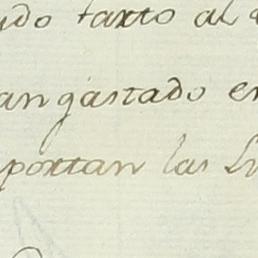 tanto al
an gastado en
portan las